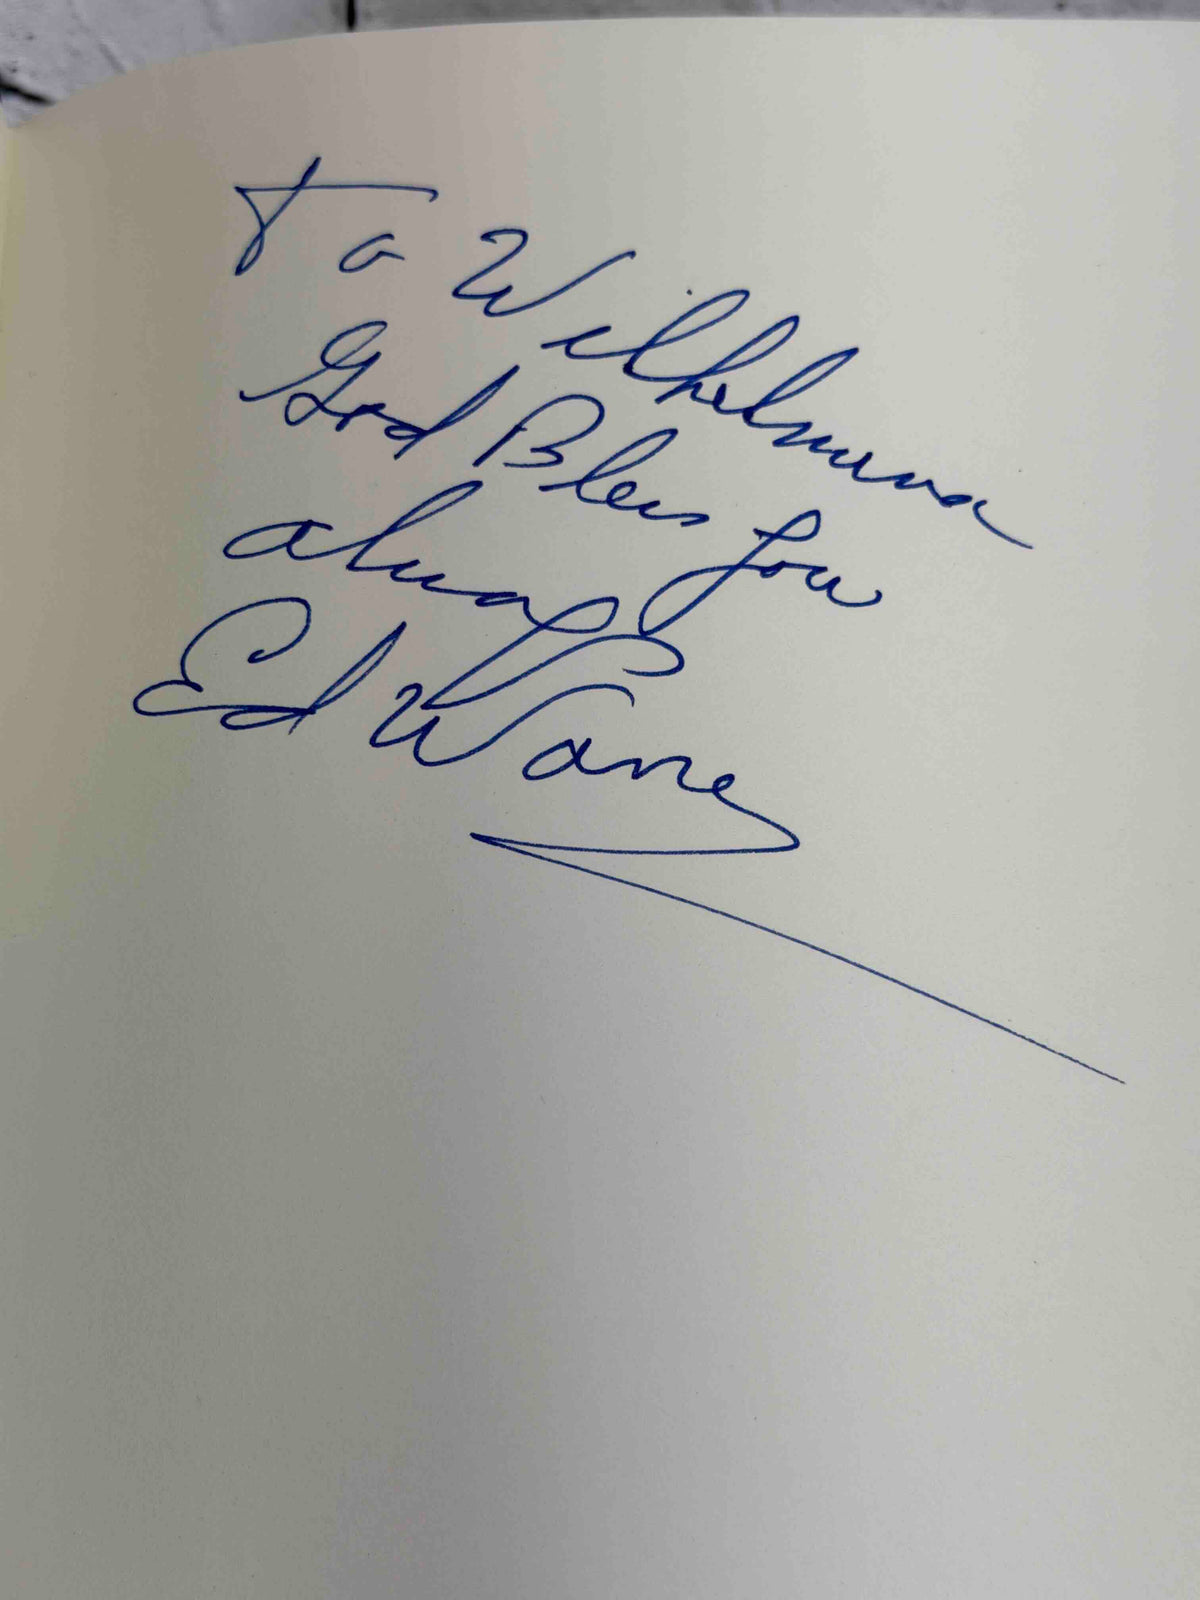 To Wilhelmina
God Bless You
always
Ed Wane